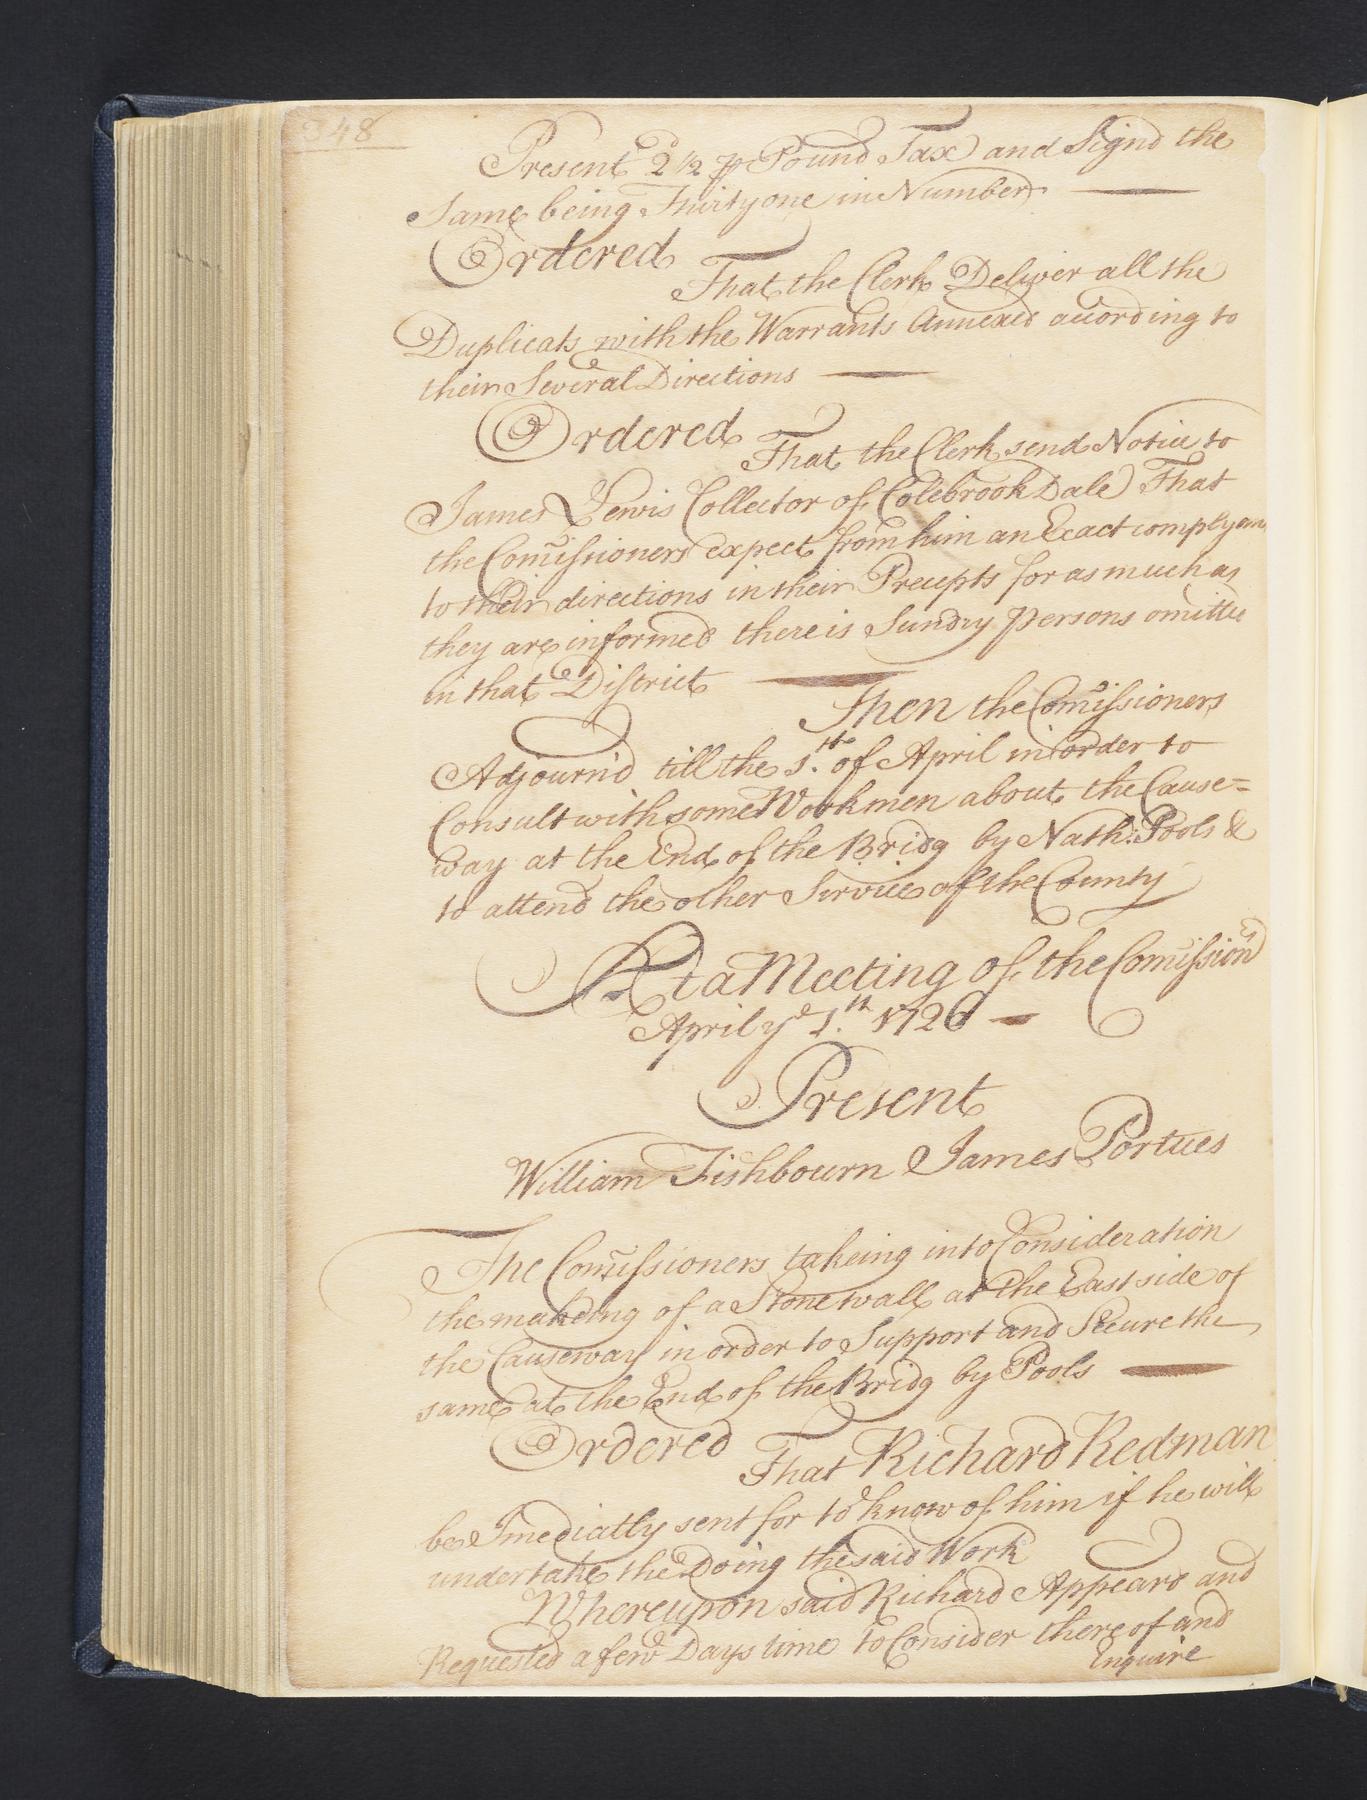 348
Present 2 1/2 ℔ Pound Tax and Signd the
Same being Thirty one in Number
Ordered
That the Clerk Deliver all the
Duplicats with the Warrants Annexed according to
their Several Directions
Ordered
That the Clerk send Notice to
James Lewis Collector of Colebrook Dale That
the Comissioners expect from him an Exact complyan
to their directions in their Precepts for as much as
they are informed there is Sundry Persons omitted
in that District
Then the Comissioners
Adjourn'd till the 1.th of April in order to
Consult with some Workmen about the Cause=
way at the End of the Bridg by Nath: Pools &
to attend the other Service of the County
At a Meeting of the Comissionrs
April ye 1.th 1726
Present
William Fishbourn James Portues
The Comissioners takeing into Consideration
the makeing of a Stone wall at the East side of
the Causeway in order to Support and Secure the
same at the End of the Bridg by Pools
Ordered
That Richard Redman
be Imediatly sent for to know of him if he will
undertake the Doing the said Work
Whereupon said Richard Appeard and
Requested a few Days time to Consider there of and
Enquire